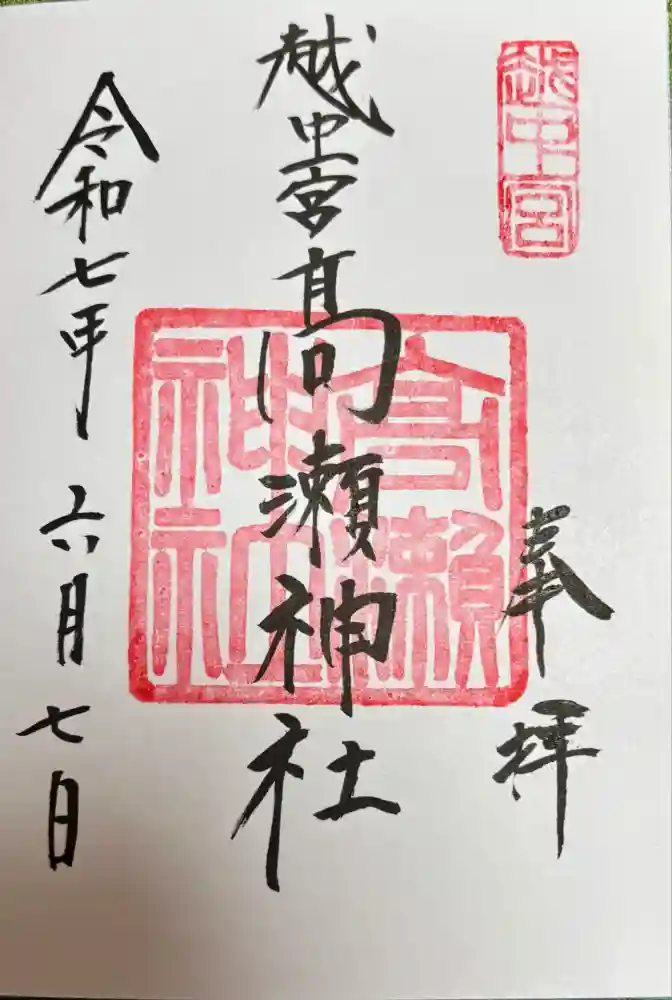 越中宮
奉拝
越中一宮高瀬神社
高瀬神社
令和七年 六月七日